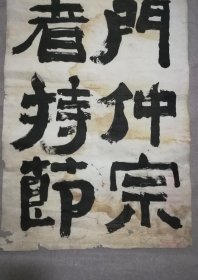 門仲宗
者持節